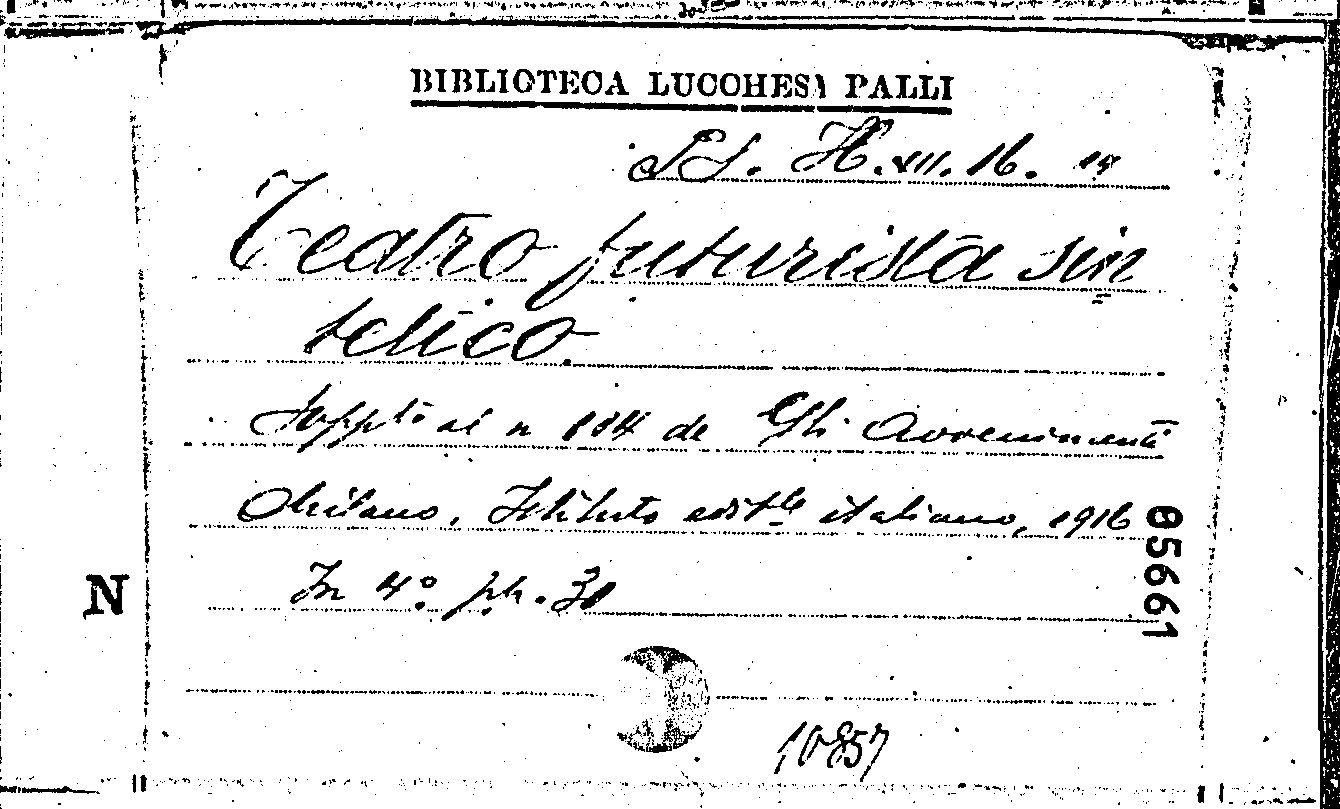 BIBLIOTECA LUCCHESI PALLI
H. XIII. 16.
Teatro futurista sin
tetico.
Suppl.to al n de Gli Avvenimenti
Milano, Istituto edit.le italiano, 1916
In 4.º pp. 30
N
05661
10857